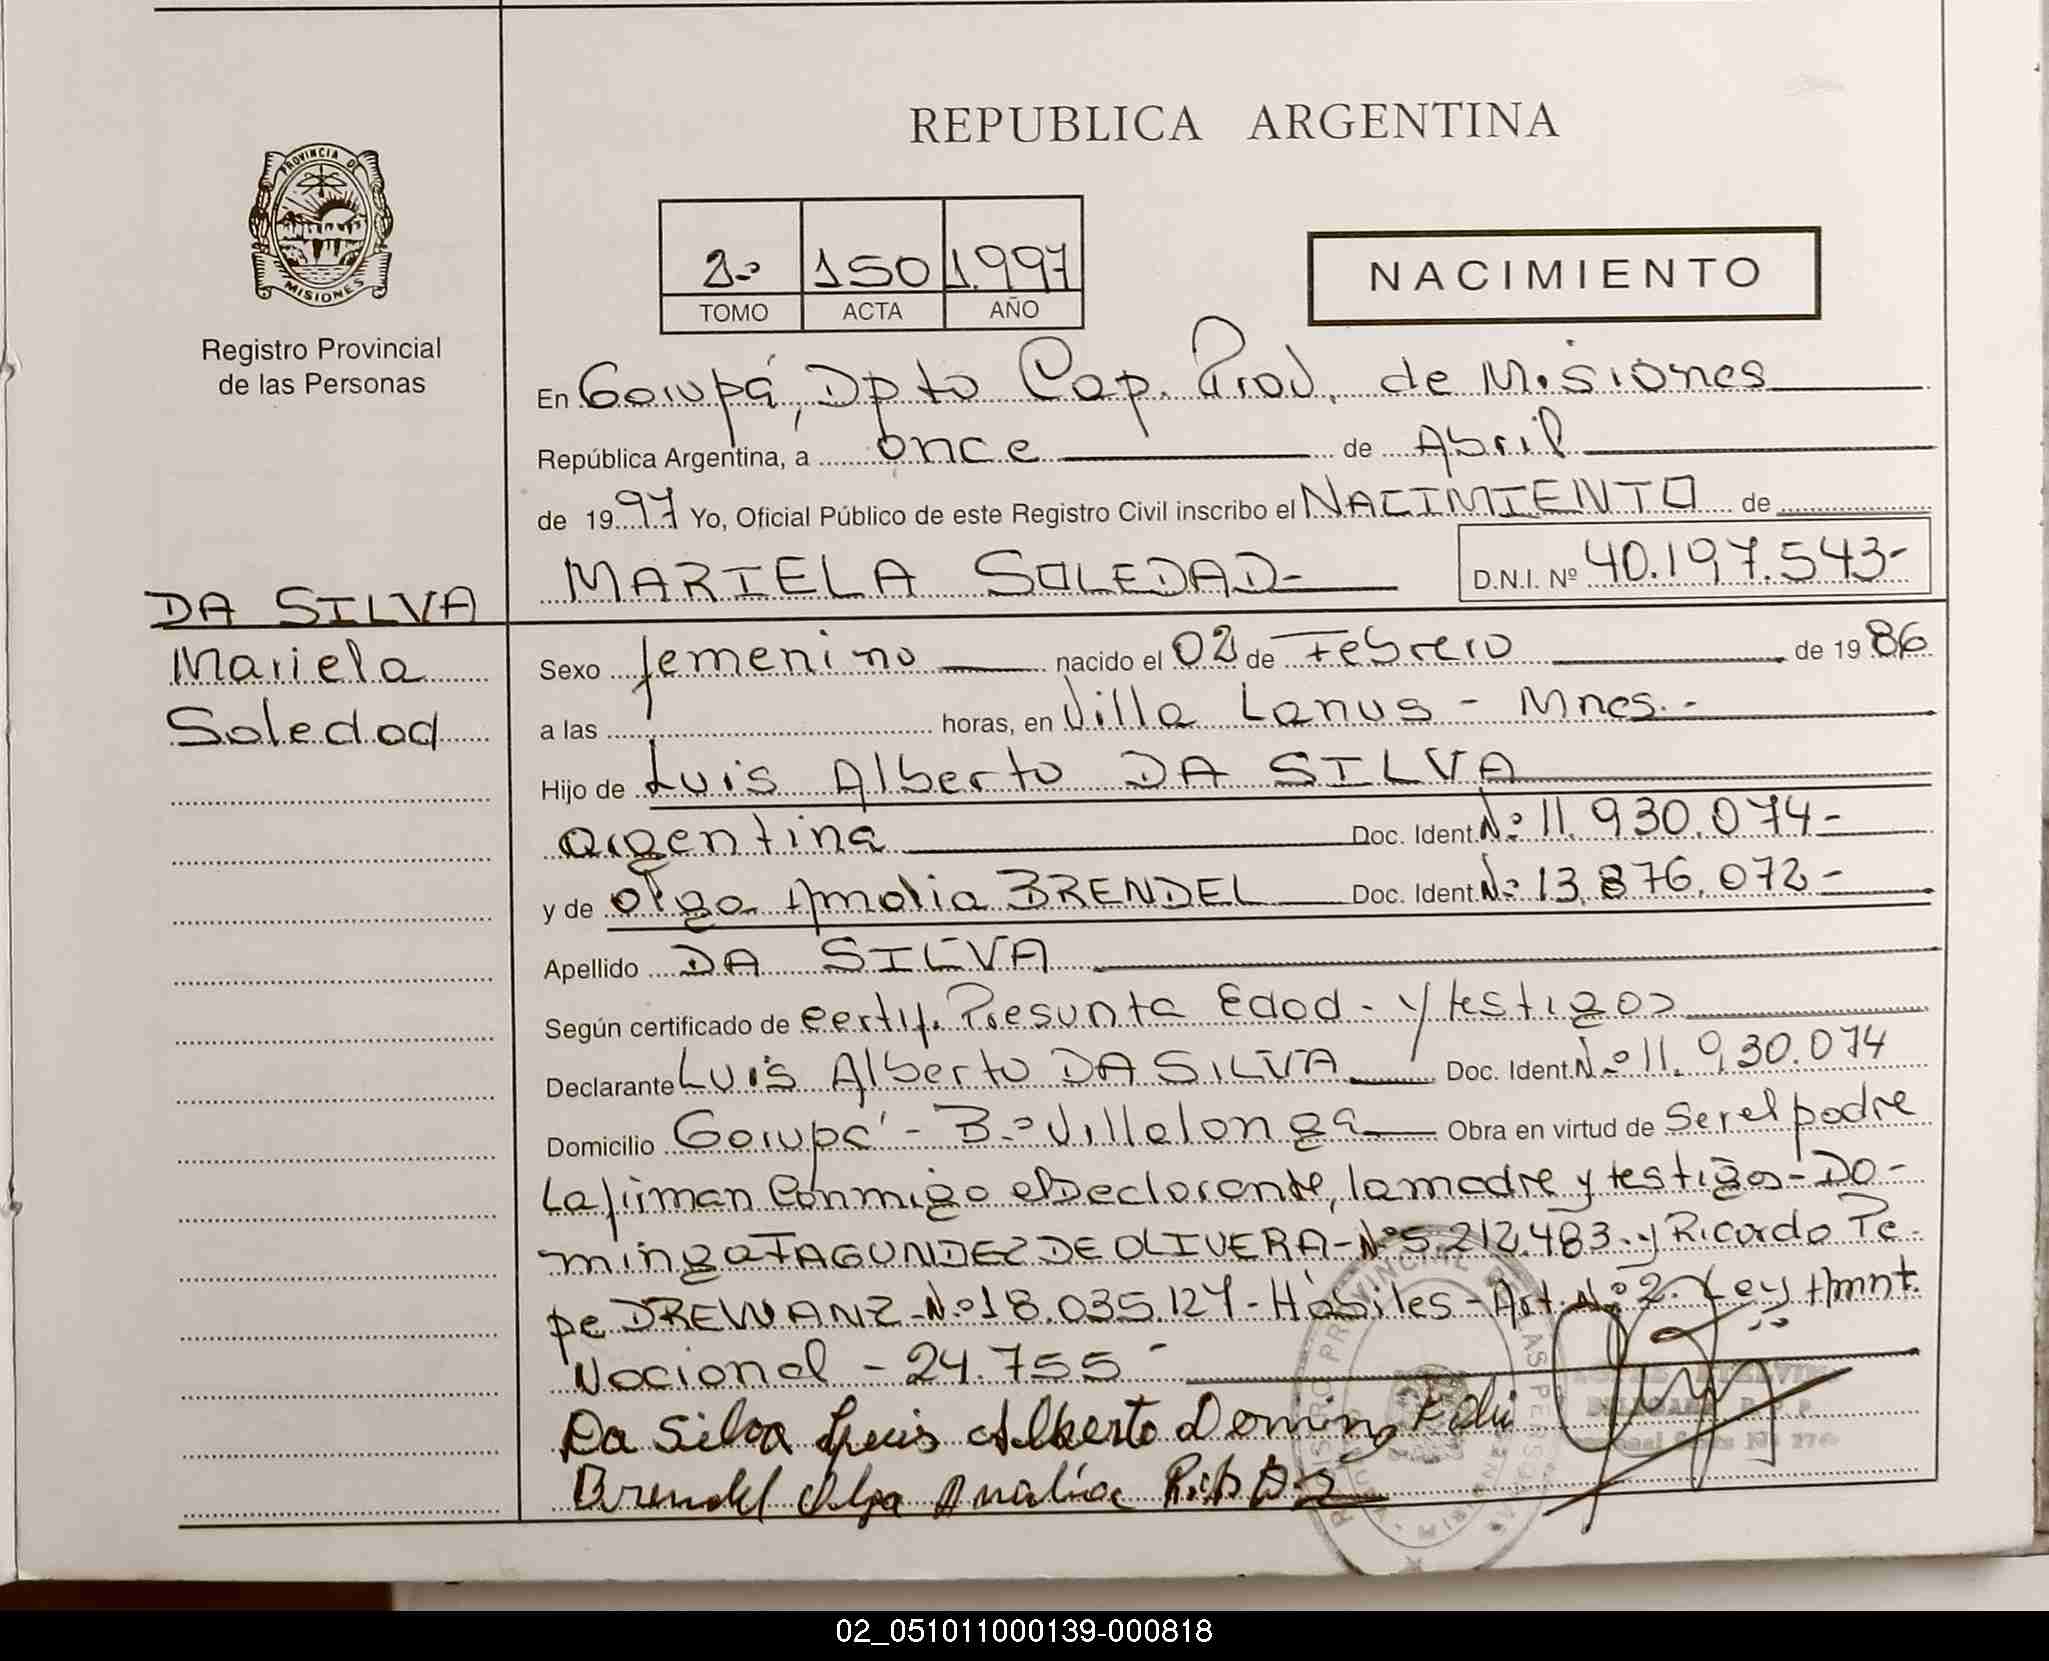 REPUBLICA ARGENTINA
PROVINCIA DE
MISIONES
Registro Provincial
de las Personas
2º 150 1.997
TOMO ACTA AÑO
NACIMIENTO
En Garupá, Dpto Cap. Prov. de Misiones
República Argentina, a once de Abril
de 1997 Yo, Oficial Público de este Registro Civil inscribo el NACIMIENTO de
MARIELA SOLEDAD- D.N.I. Nº 40.197.543-
DA SILVA
Mariela
Soledad
Sexo femenino nacido el 02 de Febrero de 1986
a las horas, en Villa Lanus - Mnes.-
Hijo de Luis Alberto DA SILVA
argentina Doc. Ident. Nº 11.930.074-
y de Olga Amalia BRENDEL Doc. Ident. Nº 13.876.072-
Apellido DA SILVA
Según certificado de certif. Presunta Edad - y testigos
Declarante Luis Alberto DA SILVA Doc. Ident. Nº 11.930.074
Domicilio Garupá - Bº Villalonga Obra en virtud de Ser el padre
La firman conmigo el Declarante, la madre y testigos - Do-
minga FAGUNDEZ DE OLIVERA - Nº 5.212.483. y Ricardo Pe-
pe DREWANZ - Nº 18.035.127 - Hábiles - Art. Nº 2. Ley Amnt.
Nacional - 24.755-
Da Silva Luis Alberto
Brendel Olga Analía
02_051011000139-000818